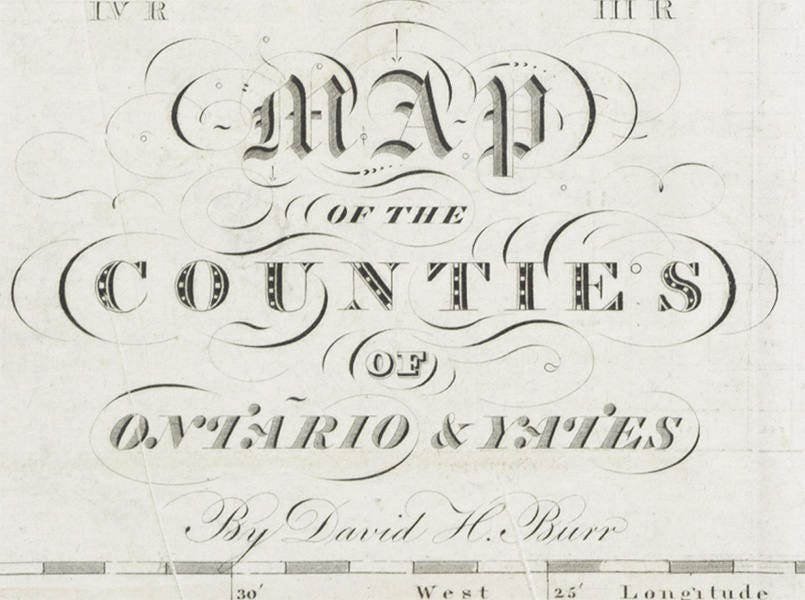 IV R III R
MAP
OF THE
COUNTIES
OF
ONTARIO & YATES
By David H. Burr
30' West 25' Longitude